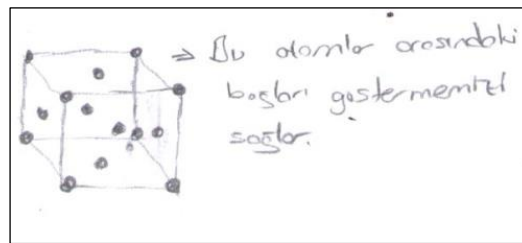 ⇒ Bu atomlar arasındaki
bağları göstermemizi
sağlar.